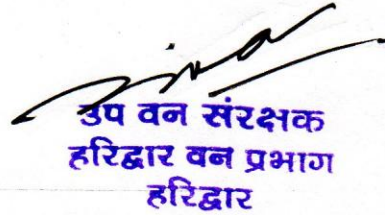 उप वन संरक्षक
हरिद्वार वन प्रभाग
हरिद्वार